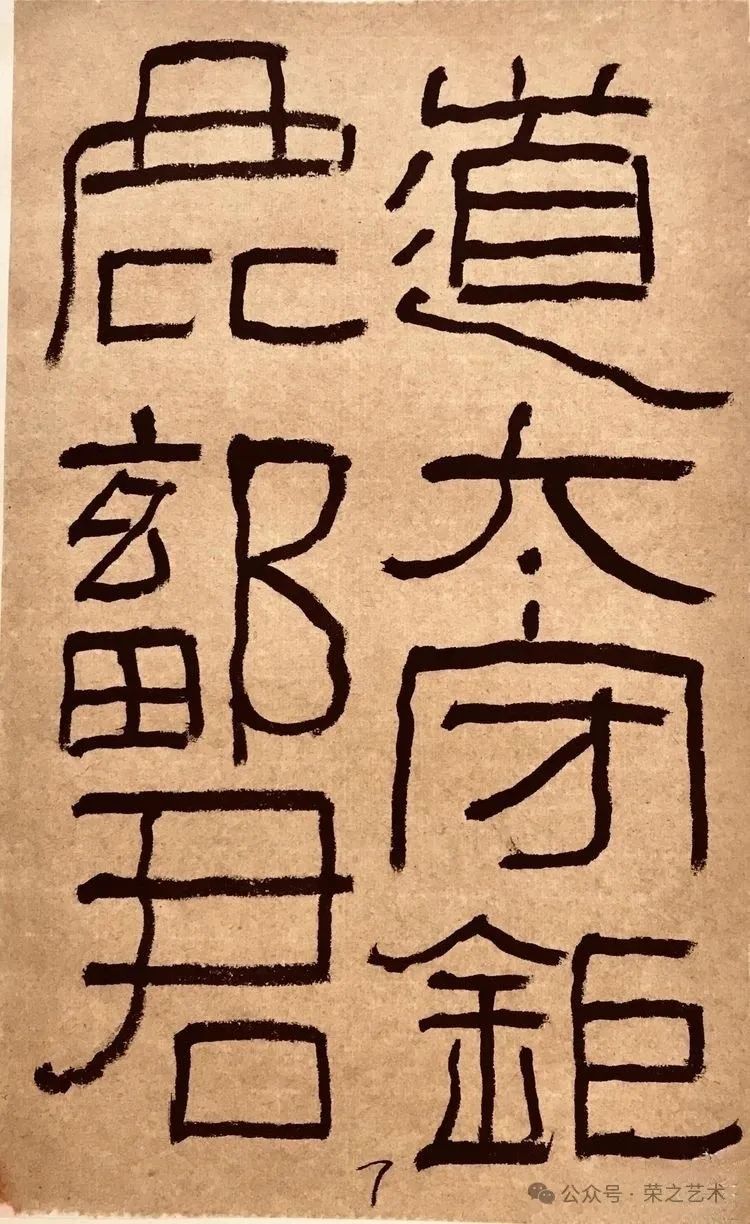 道太守鉅
鹿鄐君
7
公众号·荣之艺术